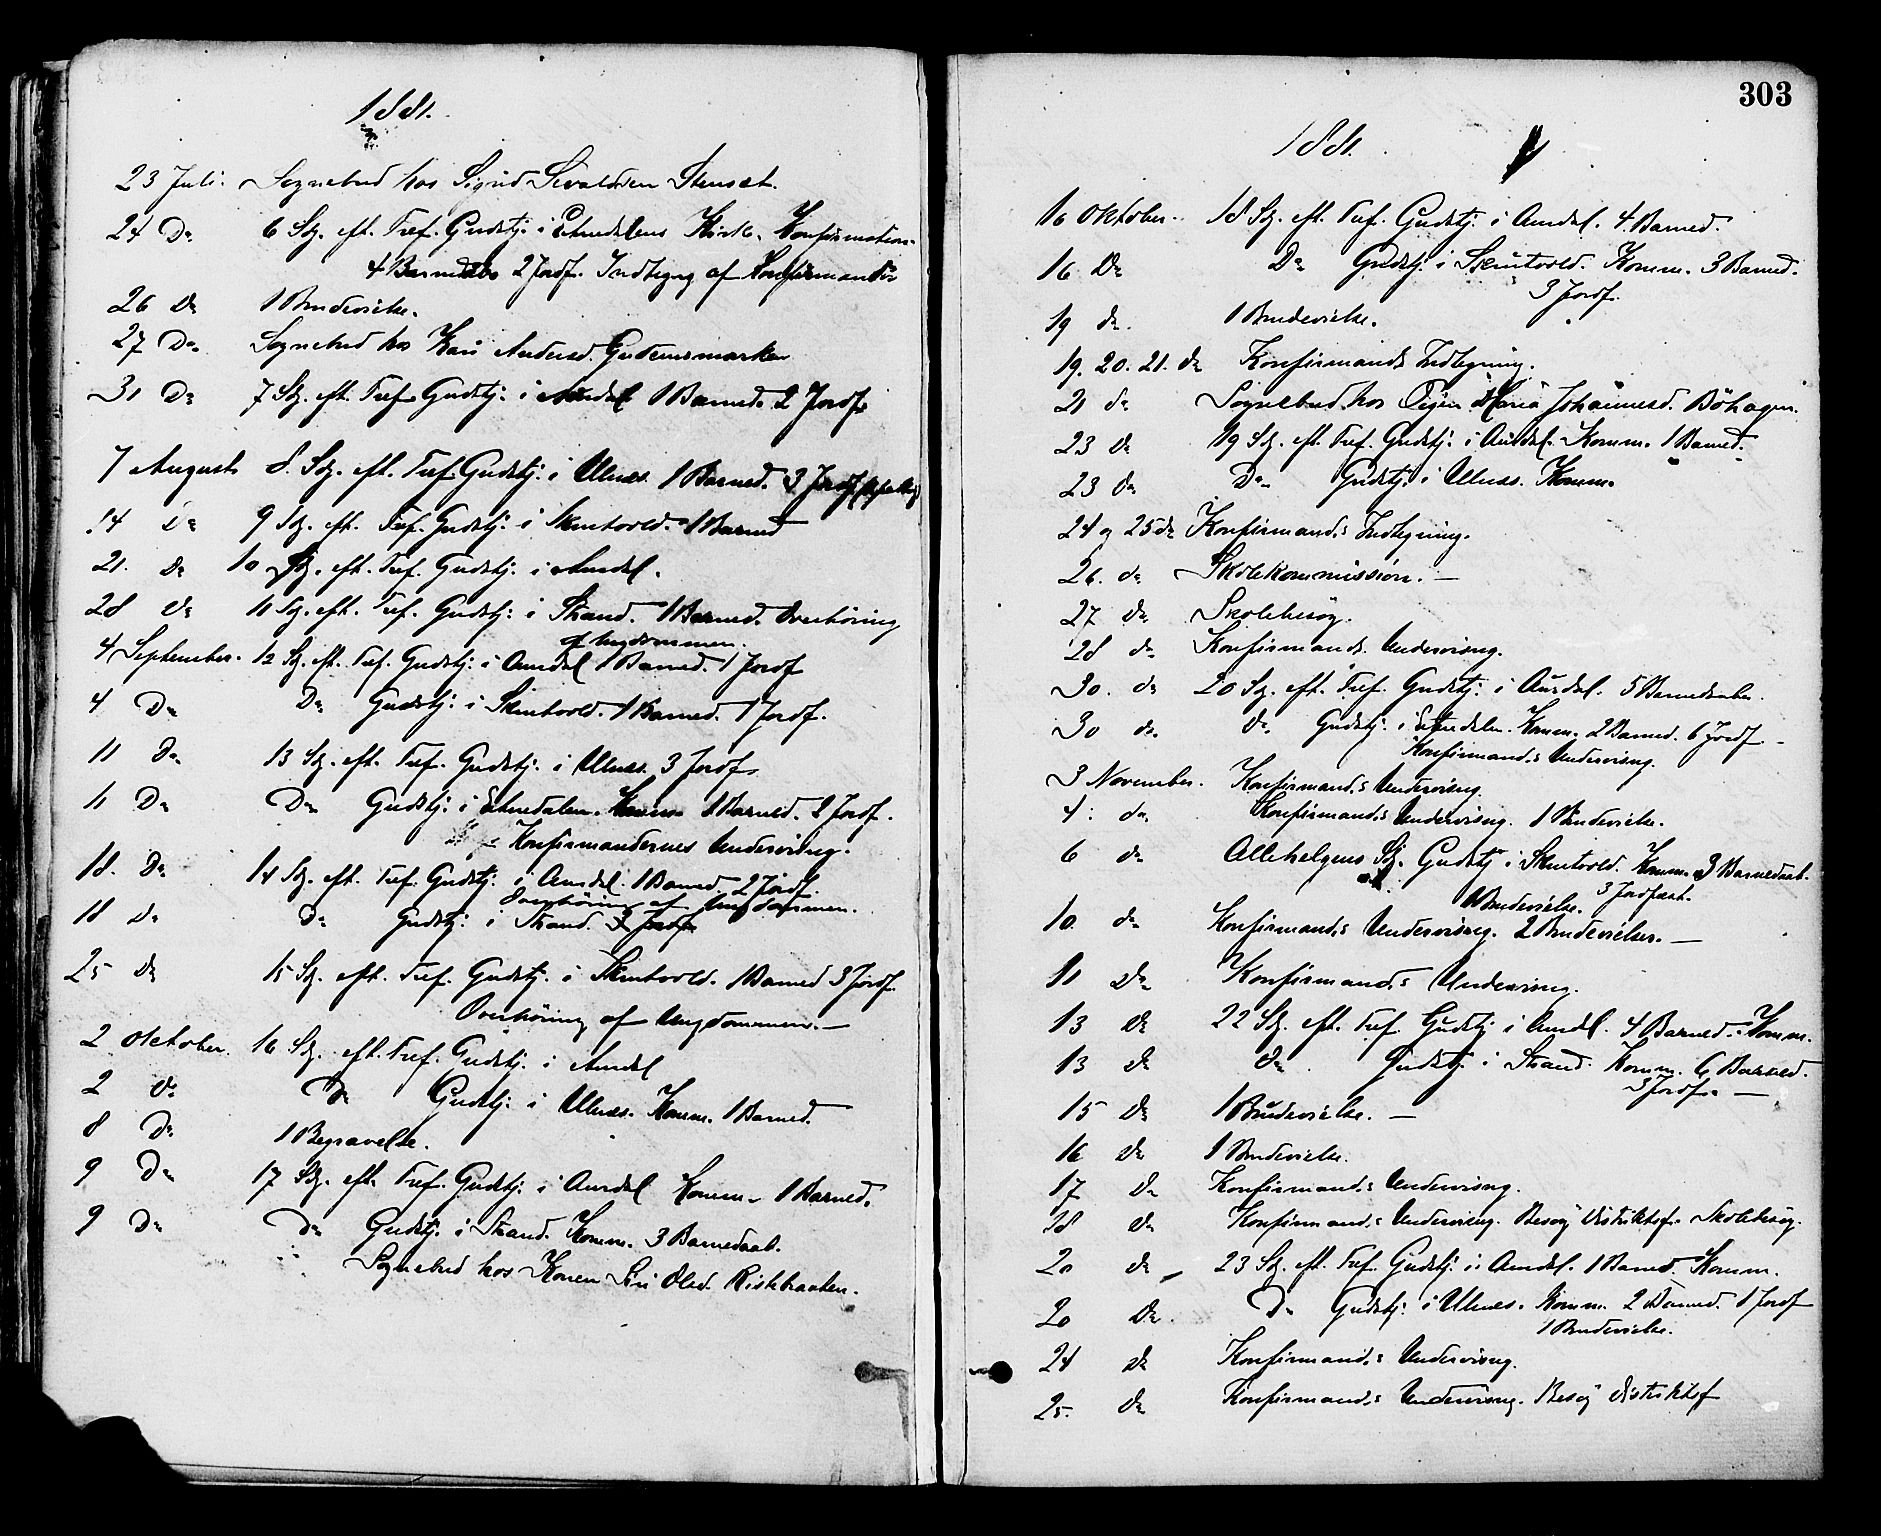 1881.
23 Juli. Sognebud hos Sigrid Sivaldsen Stensæt.
24 Do 6 Sg. eft. Tref. Gudstj. i Etnedalens Kirke. Konfirmation.
4 Barnedåb 2 Jordf. Indtegng af Konfirmander
26 Do 1 Brudevielse.
27 Do Sognebud hos Kari Andersd. Gudemsmarken
31 Do 7 Sg. eft. Tref. Gudstj. i Aurdal 1 Barned. 2 Jordf.
7 August 8. Sg. eft. Tref. Gudstj. i Ulnæs. 1 Barned. 3 Jordf
14 Do 9 Sg. eft. Tref. Gudstj. i Skrutvold. 1 Barned
21. Do 10 Sg. eft. Tref. Gudstj. i Aurdal.
28 Do 11 Sg. eft. Tref. Gudstj. i Strand. 1 Barned. Overhöring
af Ungdommen.
4 September. 12 Sg. eft. Tref. Gudstj. i Aurdal 1 Barned. 1 Jordf
4 Do Do Gudstj. i Skrutvold. 1 Barned. 1 Jordf.
11 Do 13 Sg. eft. Tref. Gudstj. i Ulnæs. 3 Jordf
11 Do Do Gudstj. i Etnedalen. Komm 1 Barned. 2 Jordf.
Konfirmandernes Undervisng.
18. Do 14 Sg. eft. Tref. Gudstj. i Aurdal. 1 Barned. 2 Jordf.
Overhöring af Ungdommen.
18 Do Do Gudstj. i Strand. 3 Jordf
25 Do 15 Sg. eft. Tref. Gudstj. i Skrutvold. 1 Barned 3 Jordf.
Overhöring af Ungdommen. —
2 Oktober. 16 Sg. eft. Tref. Gudstj. i Aurdal
2 Do Do Gudstj. i Ulnæs. Komm. 1 Barned.
8 Do 1 Begravelse.
9 Do 17 Sg. eft. Tref. Gudstj. i Aurdal Komm. 1 Barned.
9 Do Do Gudstj. i Strand. Komm. 3 Barnedaab.
Sognebud hos Konen Siri Olsd. Ristebraaten.
303
1881.
16 Oktober. 18 Sg. eft. Tref. Gudstj. i Aurdal. 4 Barned.
16 Do Do Gudstj. i Skrutvold. Komm. 3 Barned.
3 Jordf.
19 do. 1 Brudevielse.
19. 20. 21. do Konfirmands Indtegning.
21 do Sognebud hos Pigen Maria Johannesd. Böhagen.
23 Do 19 Sg. eft. Tref. Gudstj. i Aurdal. Komm. 1 Barned.
23 do Do Gudstj. i Ulnæs. Komm.
24 og 25 do Konfirmands Indtegning.
26. do Skolekommission. —
27 Do Skolebesög.
28 do Konfirmands. Undervisng.
30. do 20 Sg. eft. Tref. Gudstj. i Aurdal. 5 Barnedaabe.
30 do. do Gudstj. i Etnedalen. Komm. 2 Barned. 6 Jordf —
Konfirmands Undervisng.
3 November. Konfirmands Undervisng.
4. do. Konfirmands Undervisng. 1 Brudevielse.
6 do Allehelgens Sg. Gudstj. i Skrutvold. Komm. 3 Barnedaab.
3 Jordfæst.
1 Brudevielse.
10. do Konfirmands Undervisng. 2 Brudevielser. —
11 Do Konfirmands Undervisng.
13 Do 22 Sg. eft. Tref. Gudstj. i Aurdl. 4 Barned. Komm.
13 Do do Gudstj. i Strand. Komm. 6 Barned.
3 Jordf. —
15 Do 1 Brudevielse. —
16 Do 1 Brudevielse.
17 Do Konfirmands Undervisng.
18 Do Konfirmands Undervisng. Besög Distriktsf. Skolebesög.
20 do 23 Sg. eft. Tref. Gudstj. i Aurdal. 1 Barned. Komm.
20 Do. Do Gudstj. i Ulnæs. Komm. 2 Barned. 1 Jordf
1 Brudevielse.
24 do Konfirmands Undervisng.
25. Do Konfirmands Undervisng. Besög Distriktsf